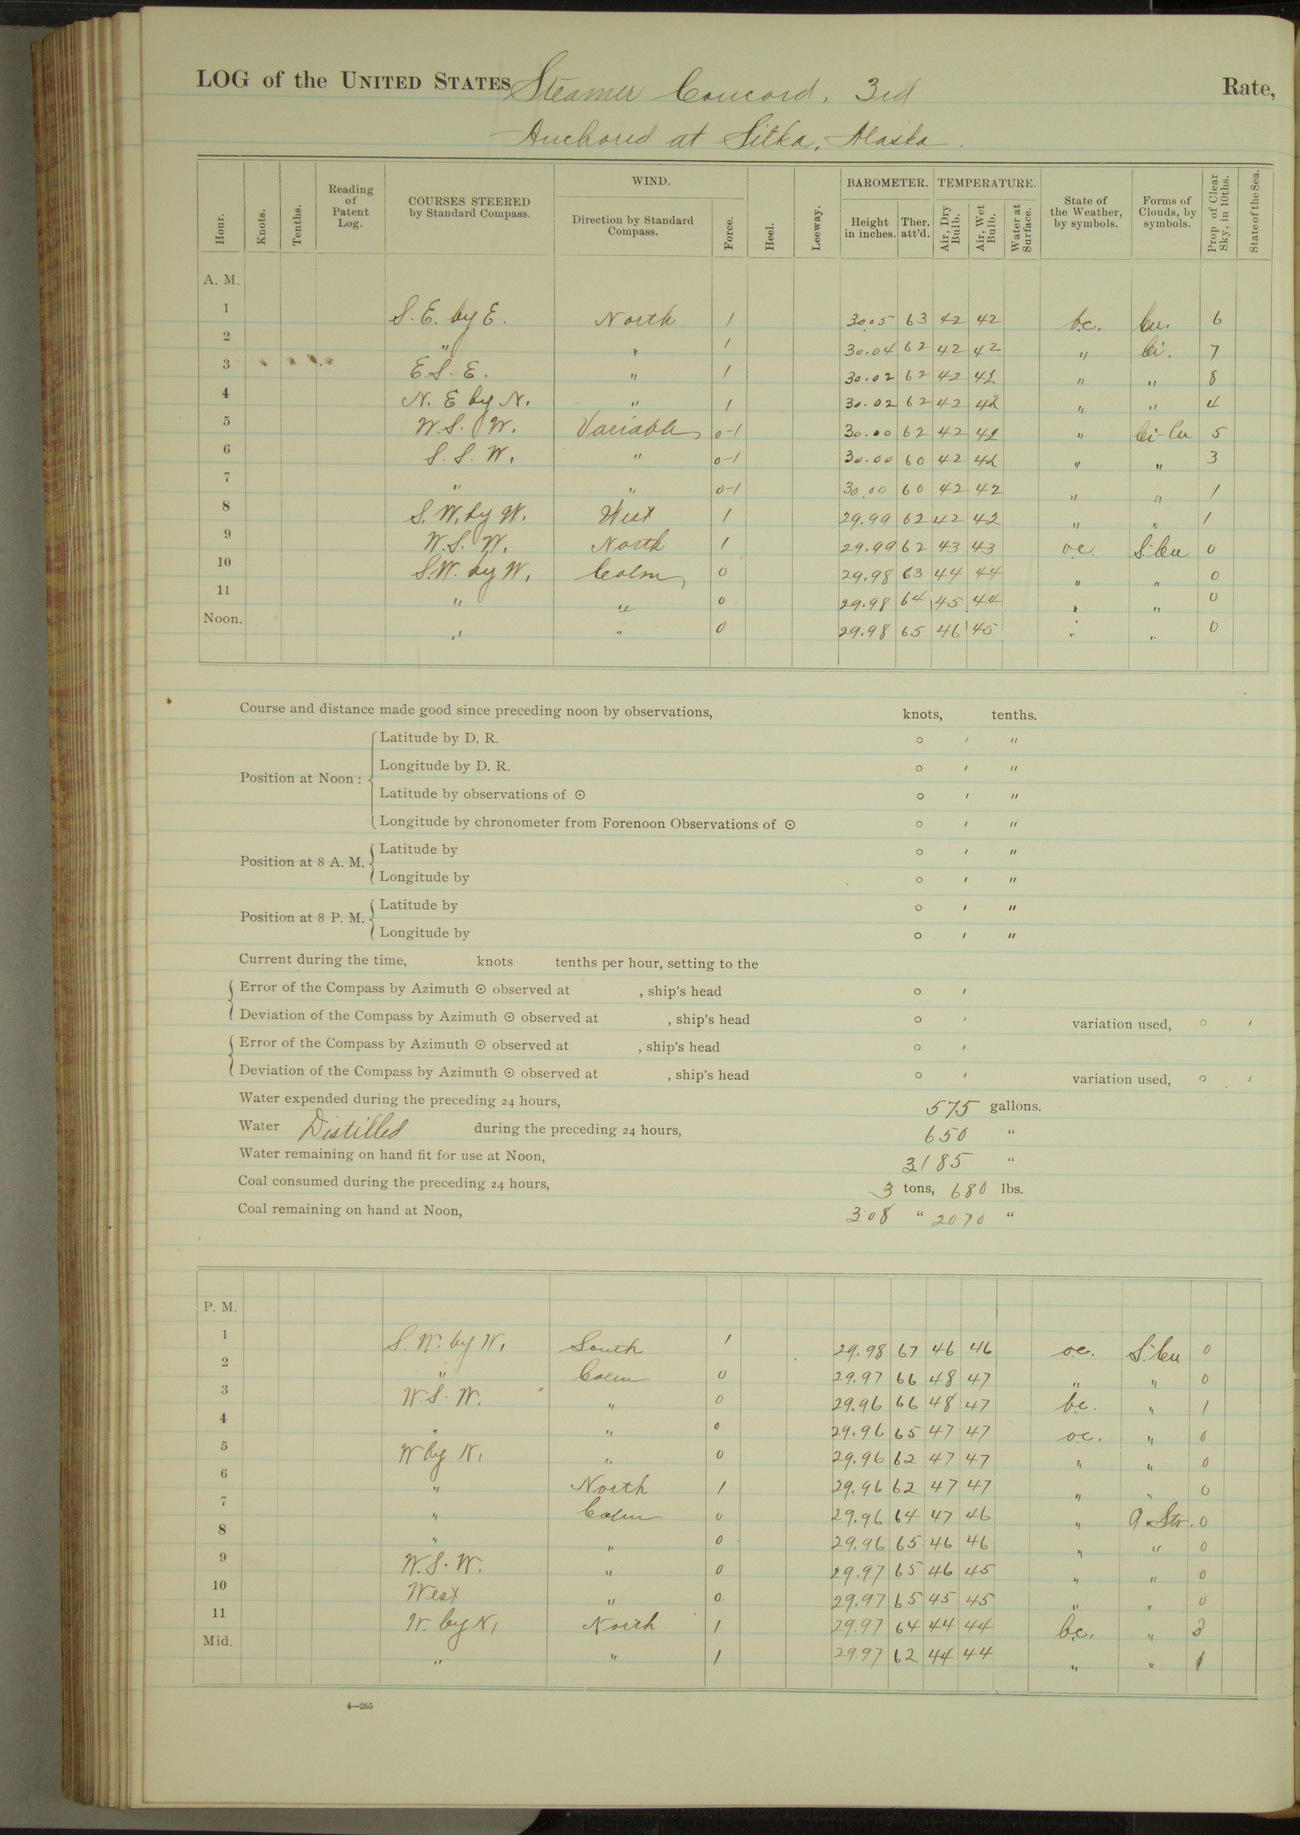 LOG of the UNITED STATES Steamer Concord, 3rd Rate,
Anchored at Sitka, Alaska.
Hour. Knots. Tenths. Reading of Patent Log. COURSES STEERED by Standard Compass. WIND. Direction by Standard Compass. Force. Heel. Leeway. BAROMETER. Height in inches. Ther. att'd. TEMPERATURE. Air, Dry Bulb. Air, Wet Bulb. Water at Surface. State of the Weather, by symbols. Forms of Clouds, by symbols. Prop. of Clear Sky, in 10ths. State of the Sea.
A. M.
1 S. E. by E. North 1 30.05 63 42 42 b.c. Cu. 6
2 " " 1 30.04 62 42 42 " Ci. 7
3 E S. E. " 1 30.02 62 42 42 " " 8
4 N. E by N. " 1 30.02 62 42 42 " " 4
5 W. S. W. Variable 0-1 30.00 62 42 42 " Ci-Cu 5
6 S. S. W. " 0-1 30.00 60 42 42 " " 3
7 " " 0-1 30.00 60 42 42 " " 1
8 S. W. by W. West 1 29.99 62 42 42 " " 1
9 W. S. W. North 1 29.99 62 43 43 o.c. S. Cu 0
10 S.W. by W. Calm 0 29.98 63 44 44 " " 0
11 " " 0 29.98 64 45 44 " " 0
Noon. " " 0 29.98 65 46 45 " " 0
Course and distance made good since preceding noon by observations, knots, tenths.
Position at Noon:
Latitude by D. R. ° ′ ″
Longitude by D. R. ° ′ ″
Latitude by observations of ☉ ° ′ ″
Longitude by chronometer from Forenoon Observations of ☉ ° ′ ″
Position at 8 A. M.
Latitude by ° ′ ″
Longitude by ° ′ ″
Position at 8 P. M.
Latitude by ° ′ ″
Longitude by ° ′ ″
Current during the time, knots tenths per hour, setting to the
Error of the Compass by Azimuth ☉ observed at , ship's head ° ′
Deviation of the Compass by Azimuth ☉ observed at , ship's head ° ′ variation used, ° ′
Error of the Compass by Azimuth ☉ observed at , ship's head ° ′
Deviation of the Compass by Azimuth ☉ observed at , ship's head ° ′ variation used, ° ′
Water expended during the preceding 24 hours, 575 gallons.
Water Distilled during the preceding 24 hours, 650 "
Water remaining on hand fit for use at Noon, 3185 "
Coal consumed during the preceding 24 hours, 3 tons, 680 lbs.
Coal remaining on hand at Noon, 308 " 2070 "
P. M.
1 S. W. by W. South 1 29.98 67 46 46 o.c. S. Cu 0
2 " Calm 0 29.97 66 48 47 " " 0
3 W. S. W. " 0 29.96 66 48 47 b.c. " 1
4 " " 0 29.96 65 47 47 o.c. " 0
5 W by N. " 0 29.96 62 47 47 " " 0
6 " North 1 29.96 62 47 47 " " 0
7 " Calm 0 29.96 64 47 46 " Str. 0
8 " " 0 29.96 65 46 46 " " 0
9 W. S. W. " 0 29.97 65 46 45 " " 0
10 West " 0 29.97 65 45 45 " " 0
11 W. by N. North 1 29.97 64 44 44 b.c. "
Mid. " " 1 29.97 62 44 44 " " 1
4—265